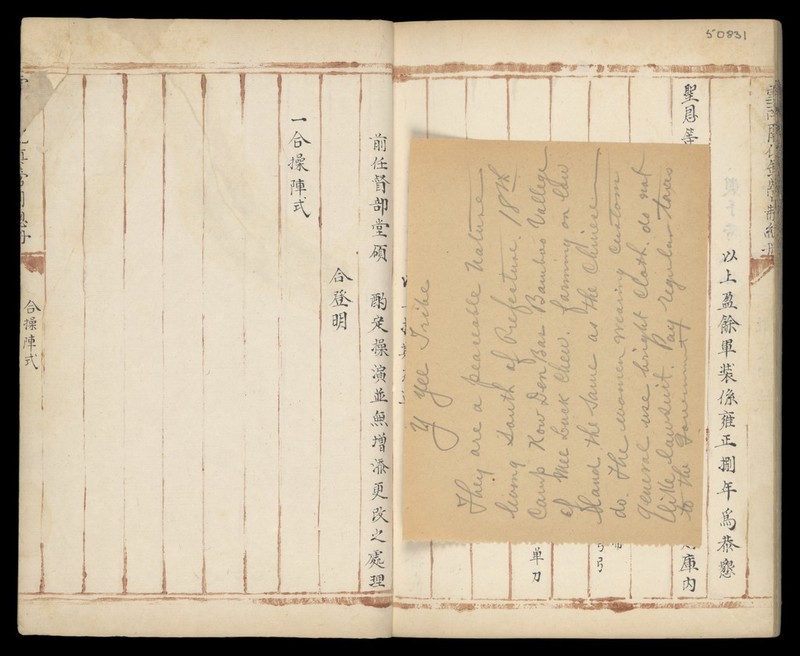 50831
以上盈餘軍裝係雍正捌年為恭懇
聖恩等
庫內
单刀
Y Yee Tribe
They are a peaceable Nature
living South of Prefecture. 18th
Camp Kow Don Bae Bamboo Vallege
of Mee Luck Chew. farming on low
land the same as the Chinese
do. The women wearing custom
general use bright cloth. do not
like lawsuit. Pay regular taxes
to the Government
前任督部堂碩 酌定操演並無增添更改之處理
合登明
一合操陣式
合操陣式